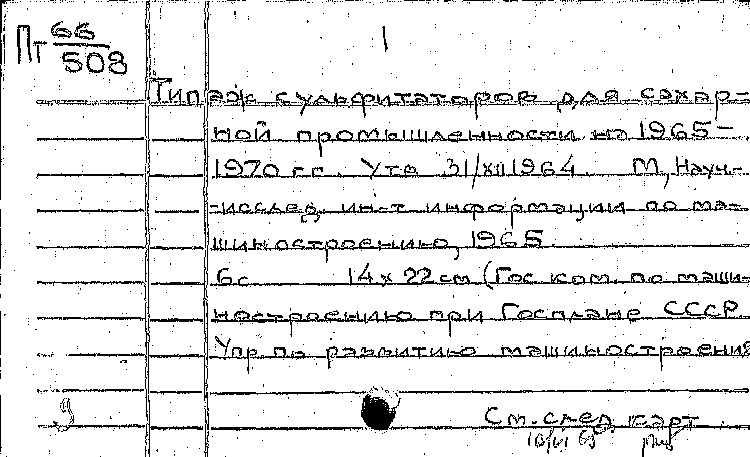 Пт 66/508
1
Типаж сульфитаторов для сахар-
ной промышленности на 1965-
1970 гг. Утв 31/XII 1964. М, Науч.-
-исслед. ин-т информации по ма-
шиностроению, 1965.
6с 14 х 22 см (Гос. ком. по маши-
ностроению при Госплане СССР.
Упр по развитию машиностроения
См. след. карт.